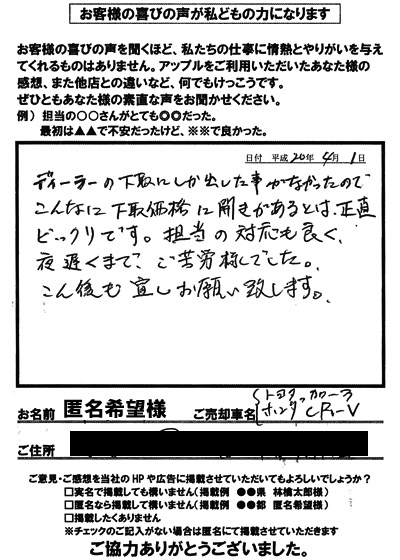 お客様の喜びの声が私どもの力になります
お客様の喜びの声を聞くほど、私たちの仕事に情熱とやりがいを与え
てくれるものはありません。アップルをご利用いただいたあなた様の
感想、また他店との違いなど、何でもけっこうです。
ぜひともあなた様の素直な声をお聞かせください。
例）担当の○○さんがとても◎◎だった。
最初は▲▲で不安だったけど、※※で良かった。
日付 平成20年4月1日
ディーラーの下取にしか出した事がなかったので
こんなに下取価格に開きがあるとは、正直
ビックリです。担当の対応も良く、
夜遅くまで、ご苦労様でした。
こん後も宜しお願い致します。
お名前 匿名希望様 ご売却車名 トヨタ カローラ
ホンダ CR-V
ご住所
ご意見・ご感想を当社のHPや広告に掲載させていただいてもよろしいでしょうか？
□実名で掲載しても構いません（掲載例 ●●県 林檎太郎様）
□匿名なら掲載して構いません（掲載例 ●●都 匿名希望様）
□掲載したくありません
※チェックのご記入がない場合は匿名にて掲載させていただきます
ご協力ありがとうございました。